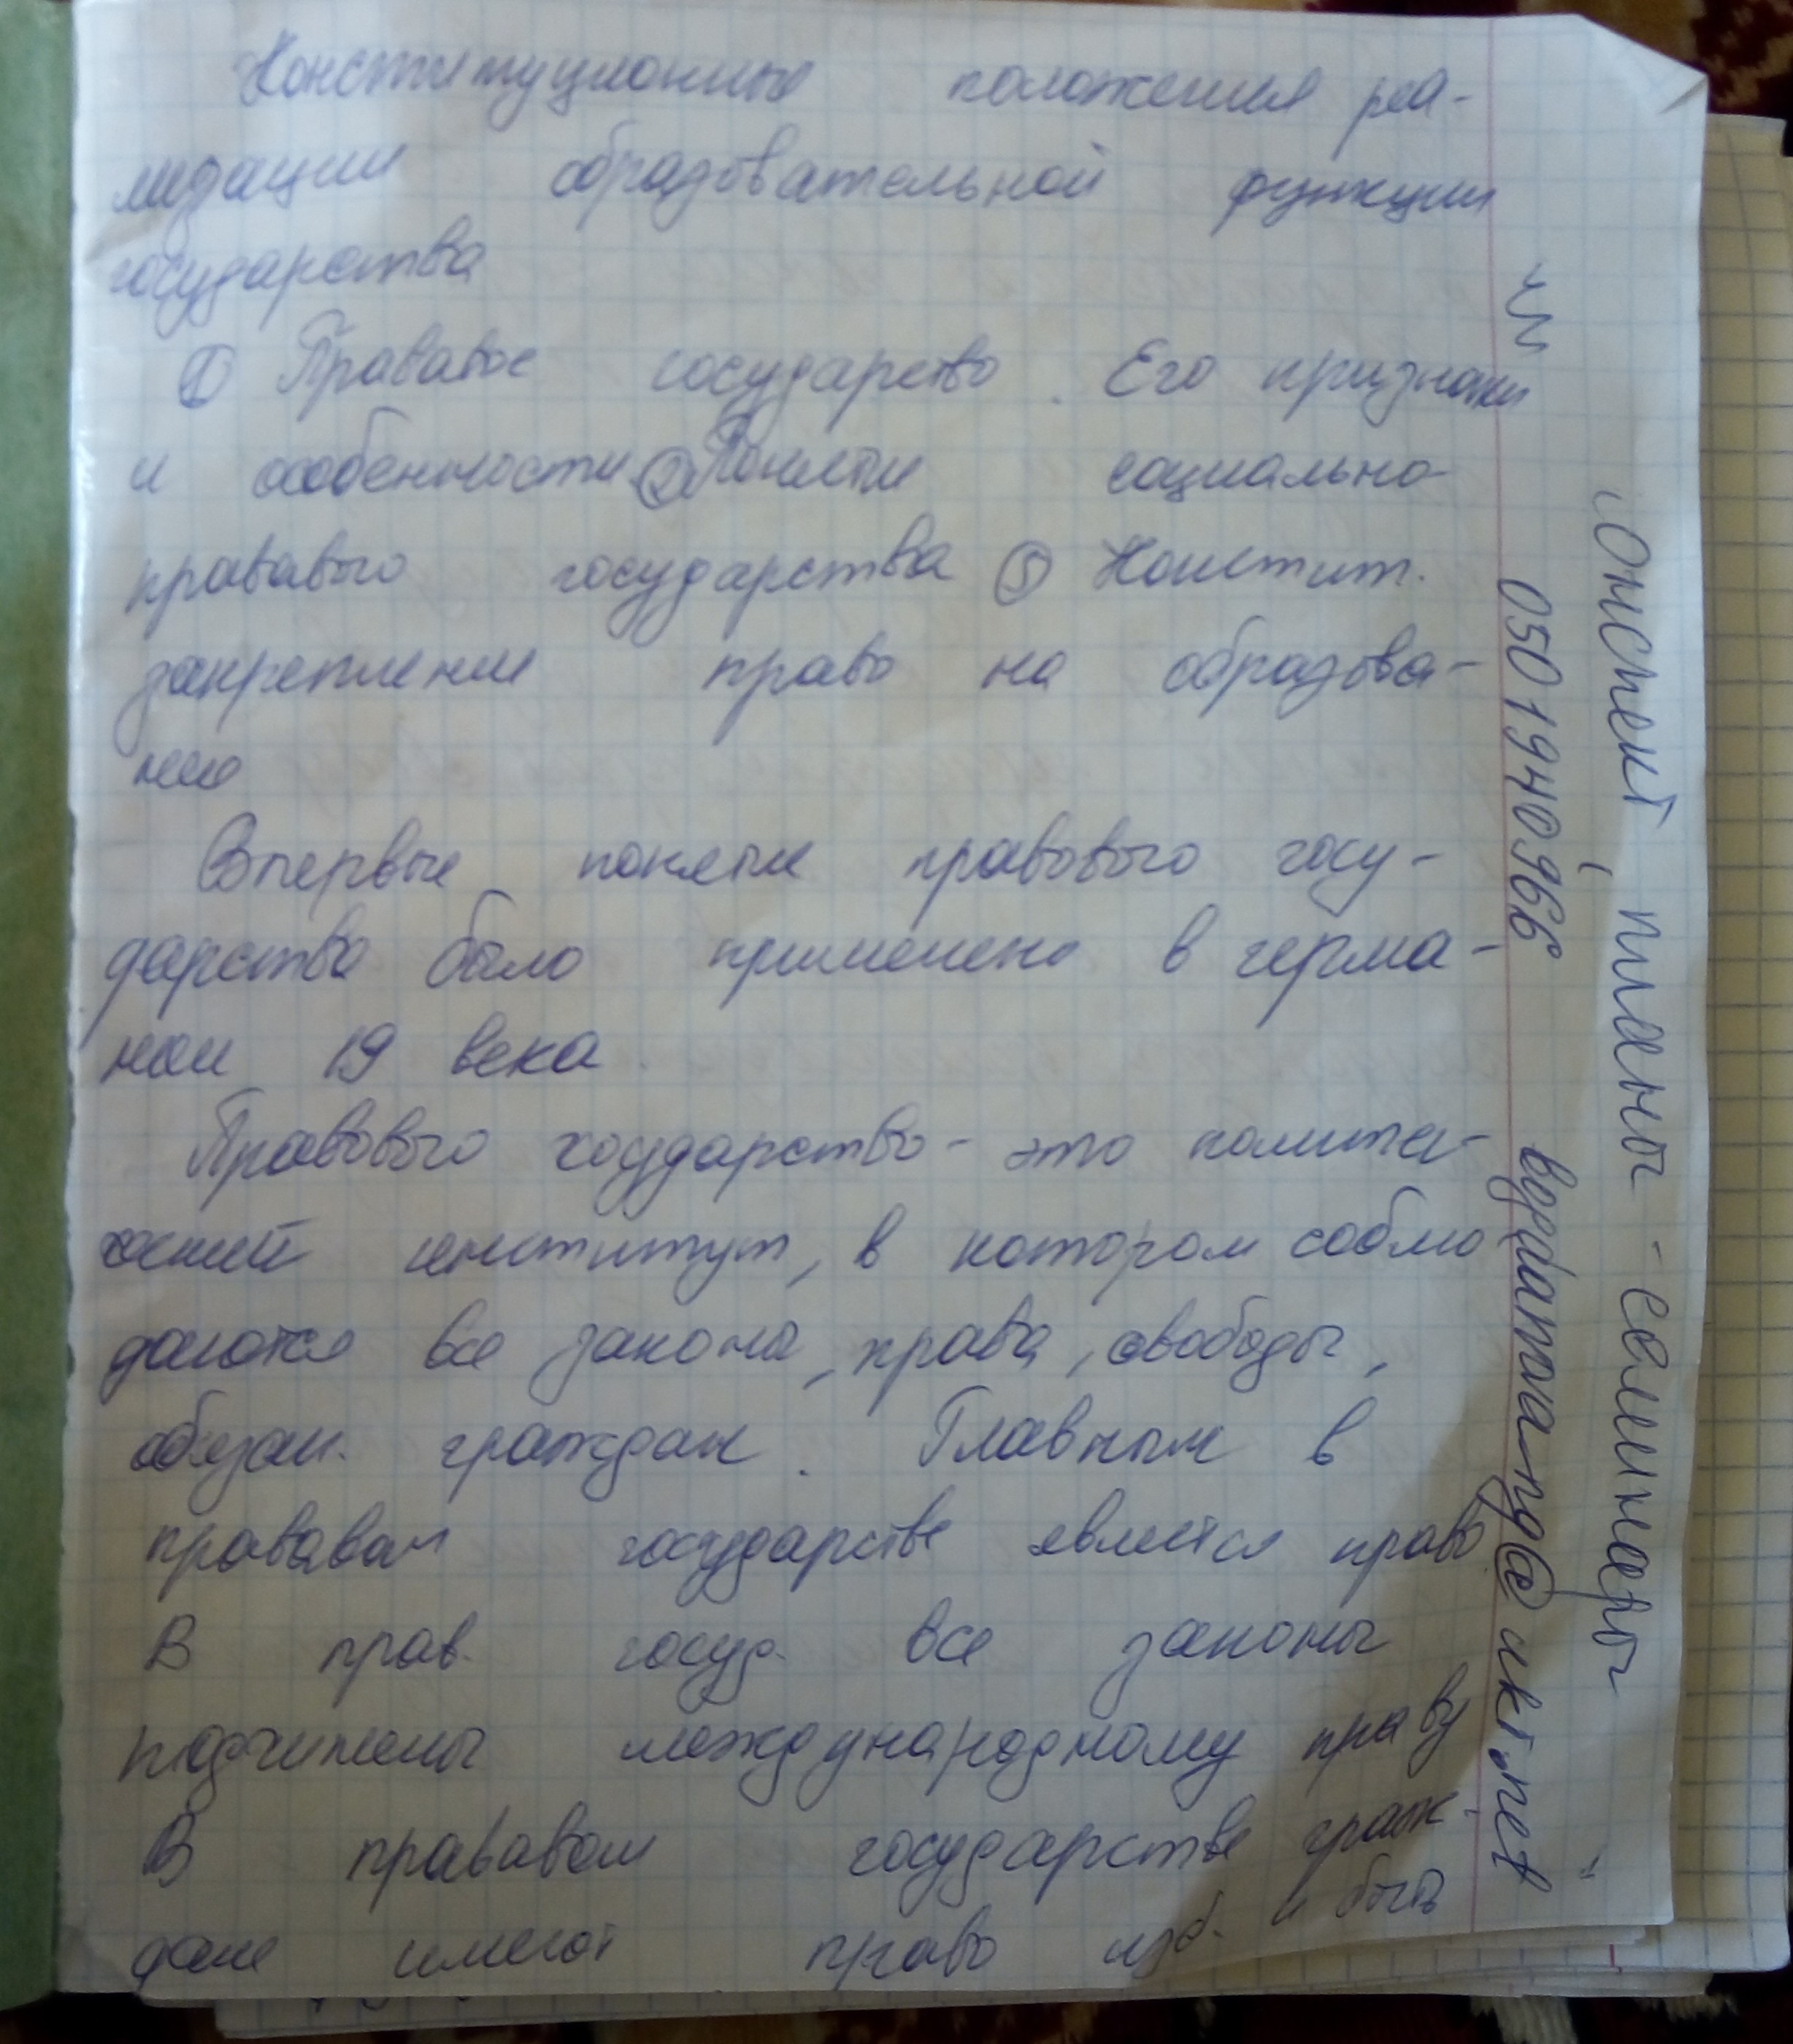 Конституционные положения реа-
лизации образовательной функции
государства
① Прававое государство. Его признаки
и особенности ② Понятие социально-
прававого государства ③ Констит.
закрепление право на образова-
ние
Впервые понятие правового госу-
дарства было применено в герма-
нии 19 века.
Правового государство - это полити-
ческий институт, в котором соблю
даются все закона, права, свободы,
обязан. граждан. Главным в
прававом государстве является право
В прав. госуд. все законы
подчинены международному праву
В прававом государстве граж.
дане имеют право изб. и быть
050 19 40 966 bogdanova_ng@ukr.net
"Онспект, планы - семинары"